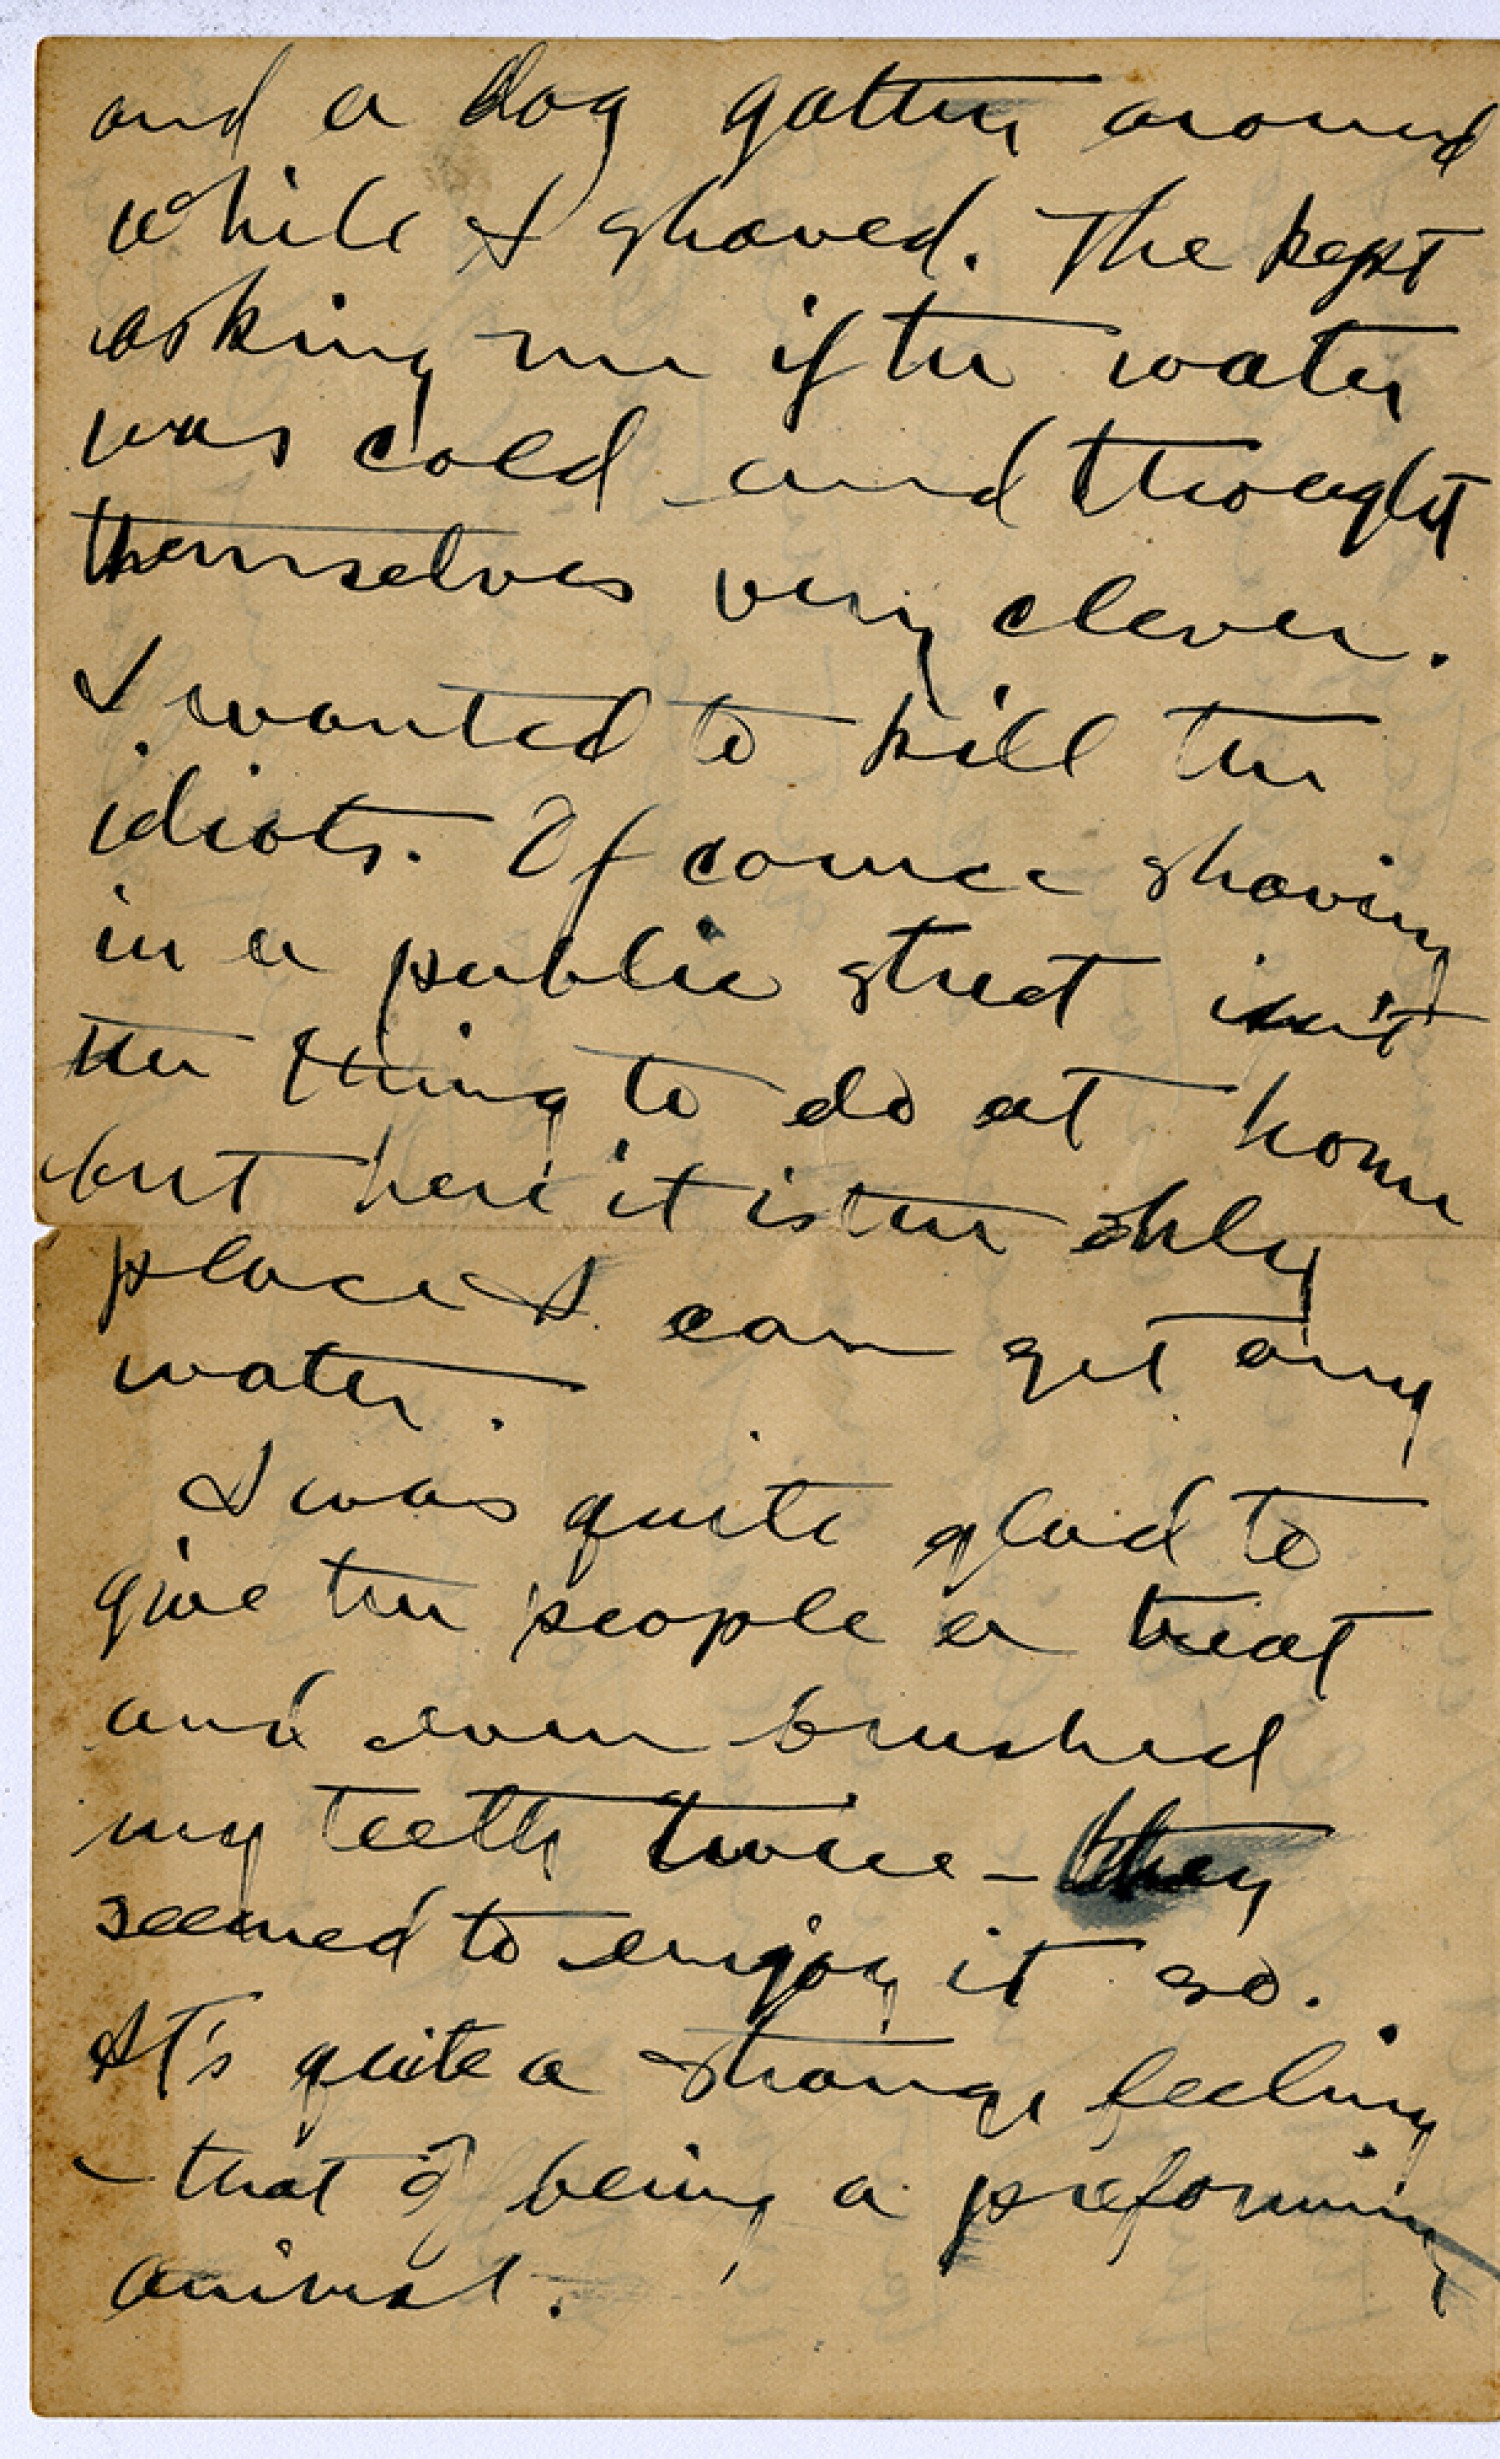 and a dog gatherd around
while I shaved. The kept
asking me if the water
was cold and thought
themselves very clever.
I wanted to kill the
idiots. Of course shaving
in a public street isn't
the thing to do at home
but here it is the only
place I can get any
water.
I was quite glad to
give the people a treat
and even brushed
my teeth twice – they
seemed to enjoy it so.
It's quite a strange feeling
– that of being a preforming
animal.